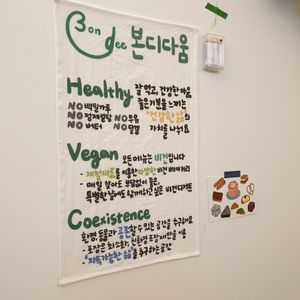 Bon dee 본디다움
Healthy 잘 먹고, 건강한 마음,
좋은기분을 느끼는
NO 백밀가루
NO 정제설탕 NO 우유
NO 버터 NO 달걀
"건강한 삶"의
가치를 나눠요.
Vegan 모든메뉴는 비건입니다
- 제철재료를 이용한 다양한 비건 베이커리
- 매일 찾아도 부담없이 좋은,
특별한 날에도 함께하고 싶은 비건디저트
Coexistence
환경, 동물과 공존할 수 있는 공간을 추구해요.
- 포장은 최소화, 친환경 포장재만을 이용
- "지속가능한 삶"을 추구하는 공간